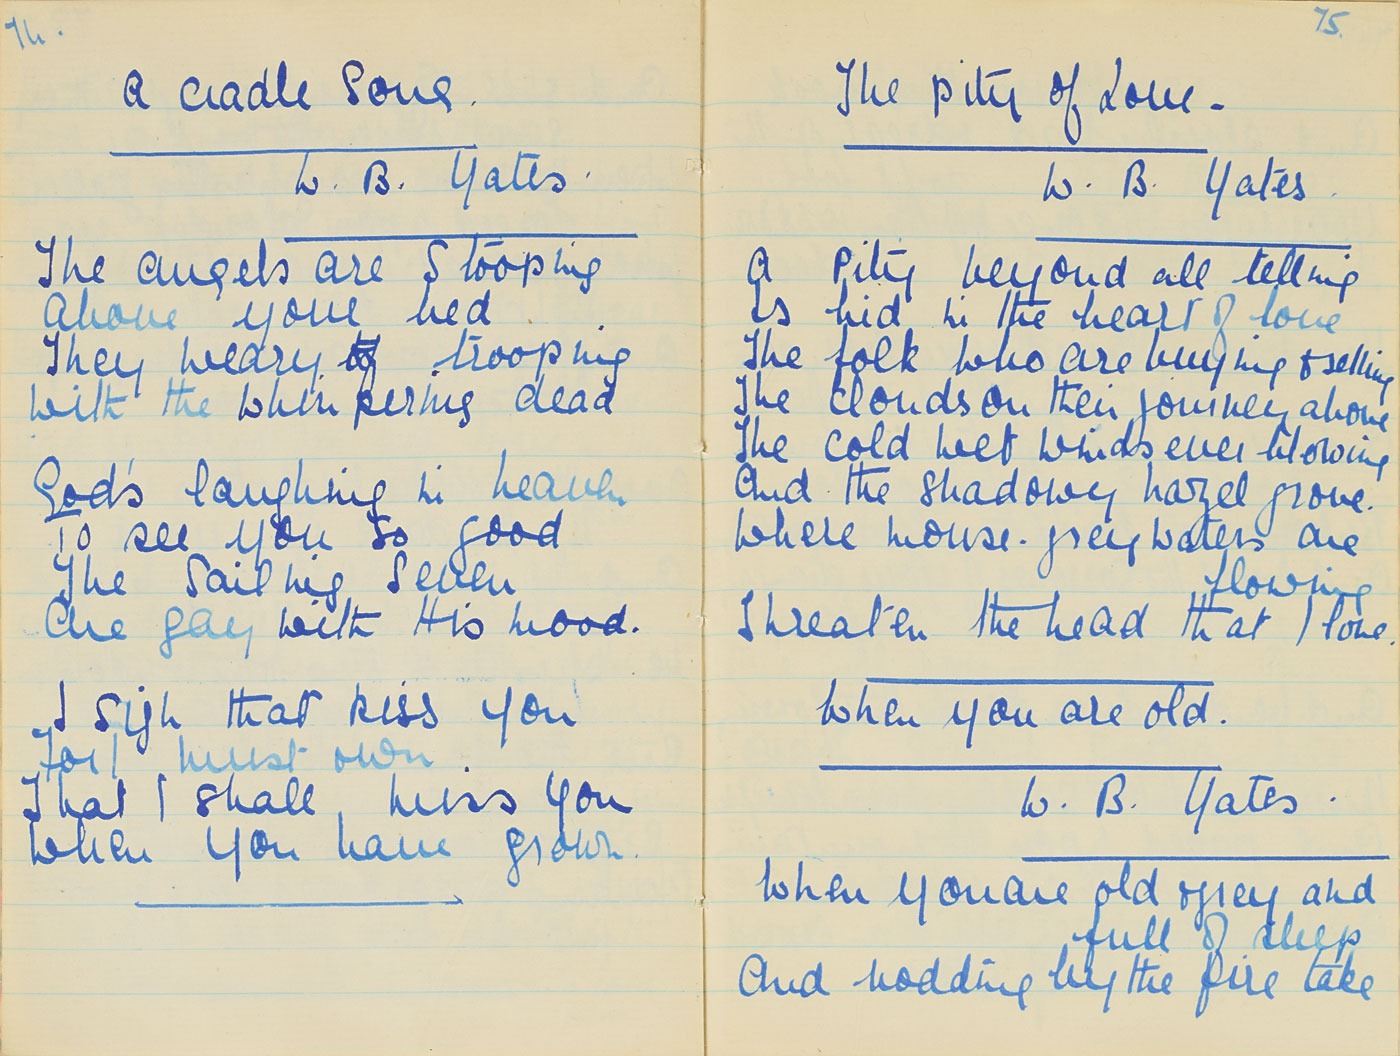 74.
A cradle Song.
W. B. Yates.
The angels are Stooping
Above your bed
They weary of trooping
With the whimpering dead
God's laughing in heaven
To see you so good
The Sailing Seven
Are gay with His mood.
I sigh that kiss you
For I must own
That I shall miss you
When you have grown.
75.
The pity of Love.
W. B. Yates.
A Pity beyond all telling
Is hid in the heart of love
The folk who are buying & selling
The clouds on their journey above
The cold wet winds ever blowing
And the shadowy hazel grove.
Where mouse-grey waters are
flowing
Threaten the head that I love.
When you are old.
W. B. Yates.
When you are old & grey and
full of sleep
And nodding by the fire take